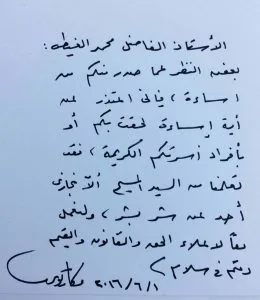 الأستاذ الفاضل محمد الغيطى :
بغض النظر عما صدر منكم من
إساءة ، فإنى اعتذر عن
أية إساءة لحقت بكم أو
بأفراد أسرتكم الكريمة ، فقد
تعلمنا من السيد المسيح ألا نجازى
أحد عن شر بشر ، ولنعمل
معاً لإعلاء الحق والقانون والقيم
دمتم فى سلام ،
٢٠١٦/٦/١